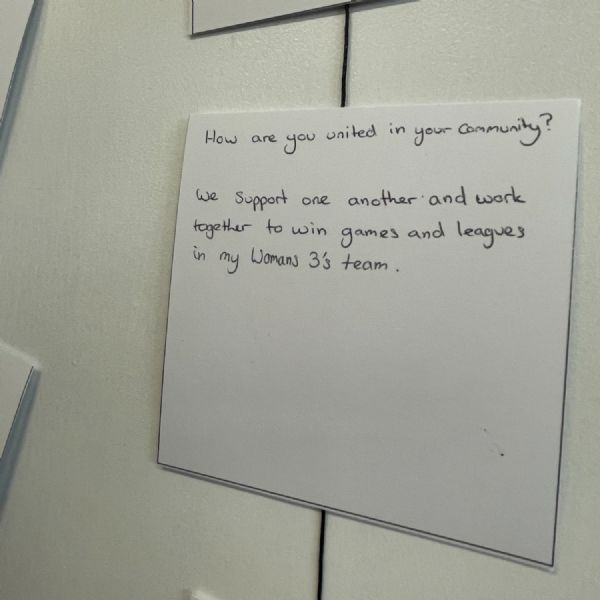 How are you united in your community?
We support one another and work
together to win games and leagues
in my Womans 3's team.